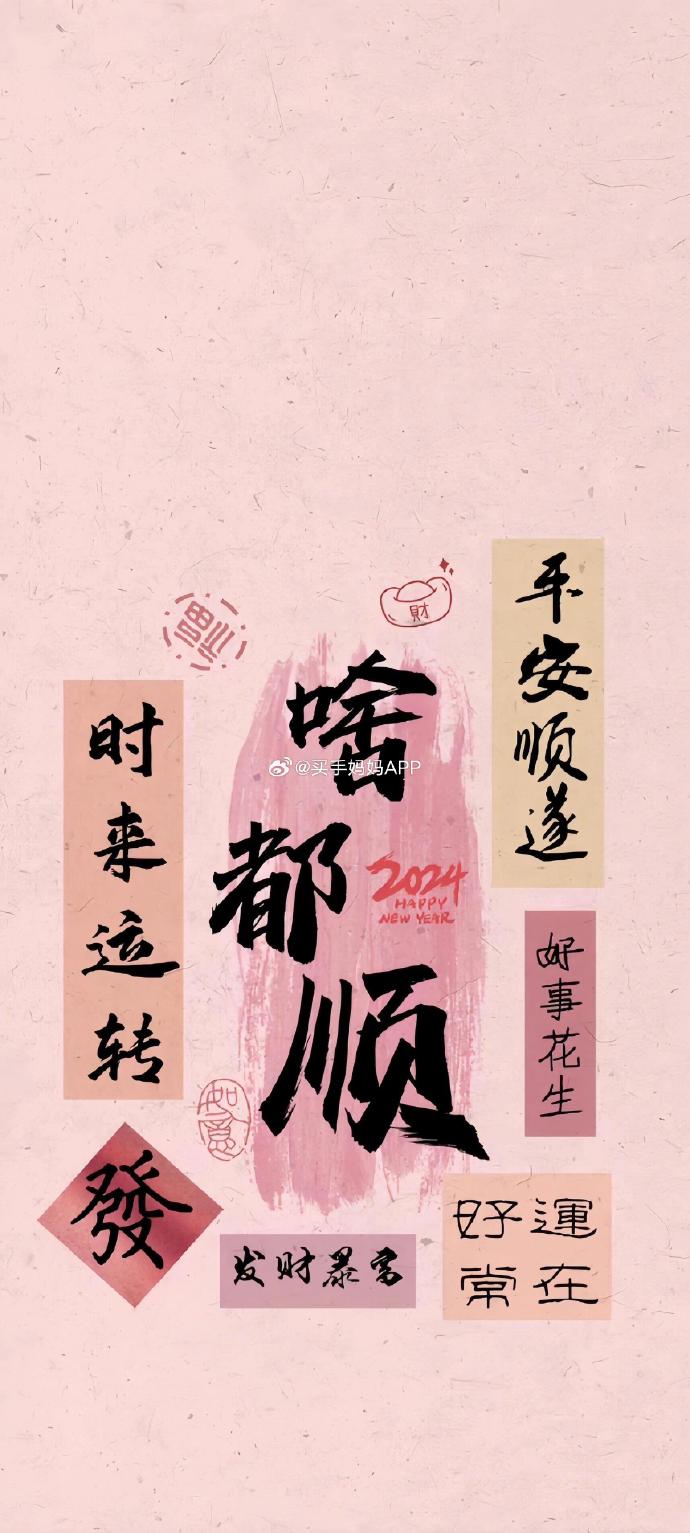 財
平安顺遂
啥都顺
@买手妈妈APP
时来运转
2024
HAPPY
NEW YEAR
好事花生
如意
發
发财暴富
好運
常在